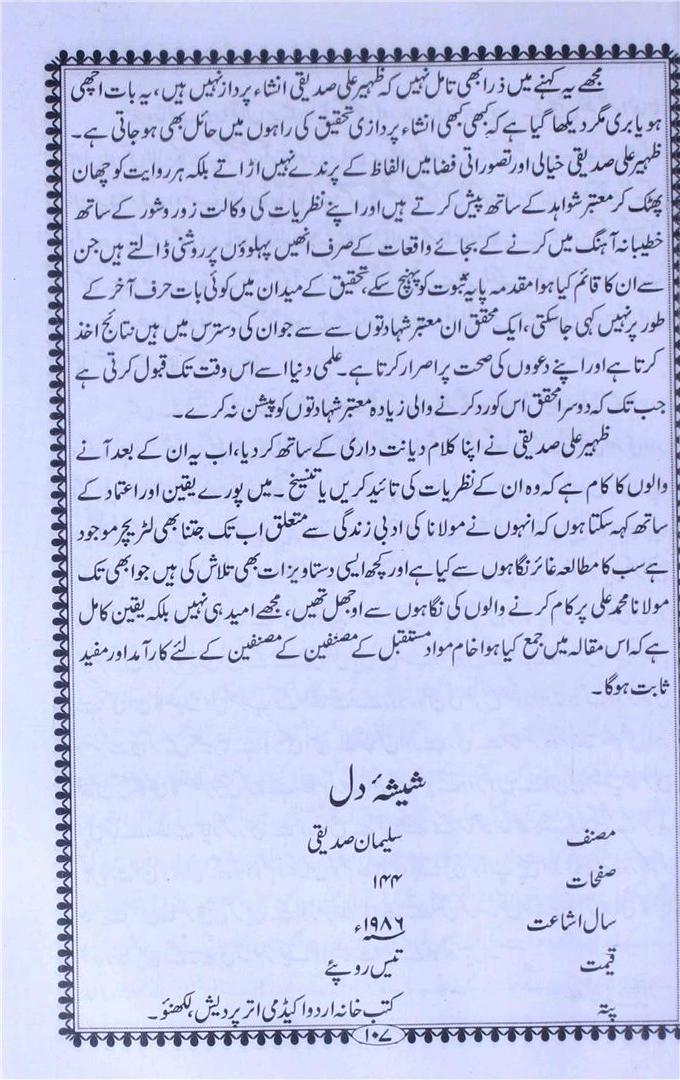 مجھے یہ کہنے میں ذرا بھی تامل نہیں کہ ظہیر علی صدیقی انشاء پرداز نہیں ہیں، یہ بات اچھی
ہو یا بری مگر دیکھا گیا ہے کہ کبھی کبھی انشاء پردازی تحقیق کی راہوں میں حائل بھی ہو جاتی ہے۔
ظہیر علی صدیقی خیالی اور تصوراتی فضا میں الفاظ کے پرندے نہیں اڑاتے بلکہ ہر روایت کو چھان
پھٹک کر معتبر شواہد کے ساتھ پیش کرتے ہیں اور اپنے نظریات کی وکالت زور و شور کے ساتھ
خطیبانہ آہنگ میں کرنے کے بجائے واقعات کے صرف انھیں پہلوؤں پر روشنی ڈالتے ہیں جن
سے ان کا قائم کیا ہوا مقدمہ پایہ ثبوت کو پہنچ سکے، تحقیق کے میدان میں کوئی بات حرف آخر کے
طور پر نہیں کہی جا سکتی، ایک محقق ان معتبر شہادتوں سے سے جو ان کی دسترس میں ہیں نتائج اخذ
کرتا ہے اور اپنے دعووں کی صحت پر اصرار کرتا ہے۔ علمی دنیا اسے اس وقت تک قبول کرتی ہے
جب تک کہ دوسرا محقق اس کو رد کرنے والی زیادہ معتبر شہادتوں کو پیشن نہ کرے۔
ظہیر علی صدیقی نے اپنا کلام دیانت داری کے ساتھ کر دیا، اب یہ ان کے بعد آنے
والوں کا کام ہے کہ وہ ان کے نظریات کی تائید کریں یا تنسیخ۔ میں پورے یقین اور اعتماد کے
ساتھ کہہ سکتا ہوں کہ انہوں نے مولانا کی ادبی زندگی سے متعلق اب تک جتنا بھی لٹریچر موجود
ہے سب کا مطالعہ غائر نگاہوں سے کیا ہے اور کچھ ایسی دستاویزات بھی تلاش کی ہیں جو ابھی تک
مولانا محمد علی پر کام کرنے والوں کی نگاہوں سے اوجھل تھیں، مجھے امید ہی نہیں بلکہ یقین کامل
ہے کہ اس مقالہ میں جمع کیا ہوا خام مواد مستقبل کے مصنفین کے مصنفین کے لئے کارآمد اور مفید
ثابت ہوگا۔
شیشۂ دل
مصنف سلیمان صدیقی
صفحات ۱۴۴
سال اشاعت ۱۹۸۶ء
قیمت تیس روپئے
پتہ کتب خانہ اردو اکیڈمی اتر پردیش، لکھنؤ۔
۱۰۷